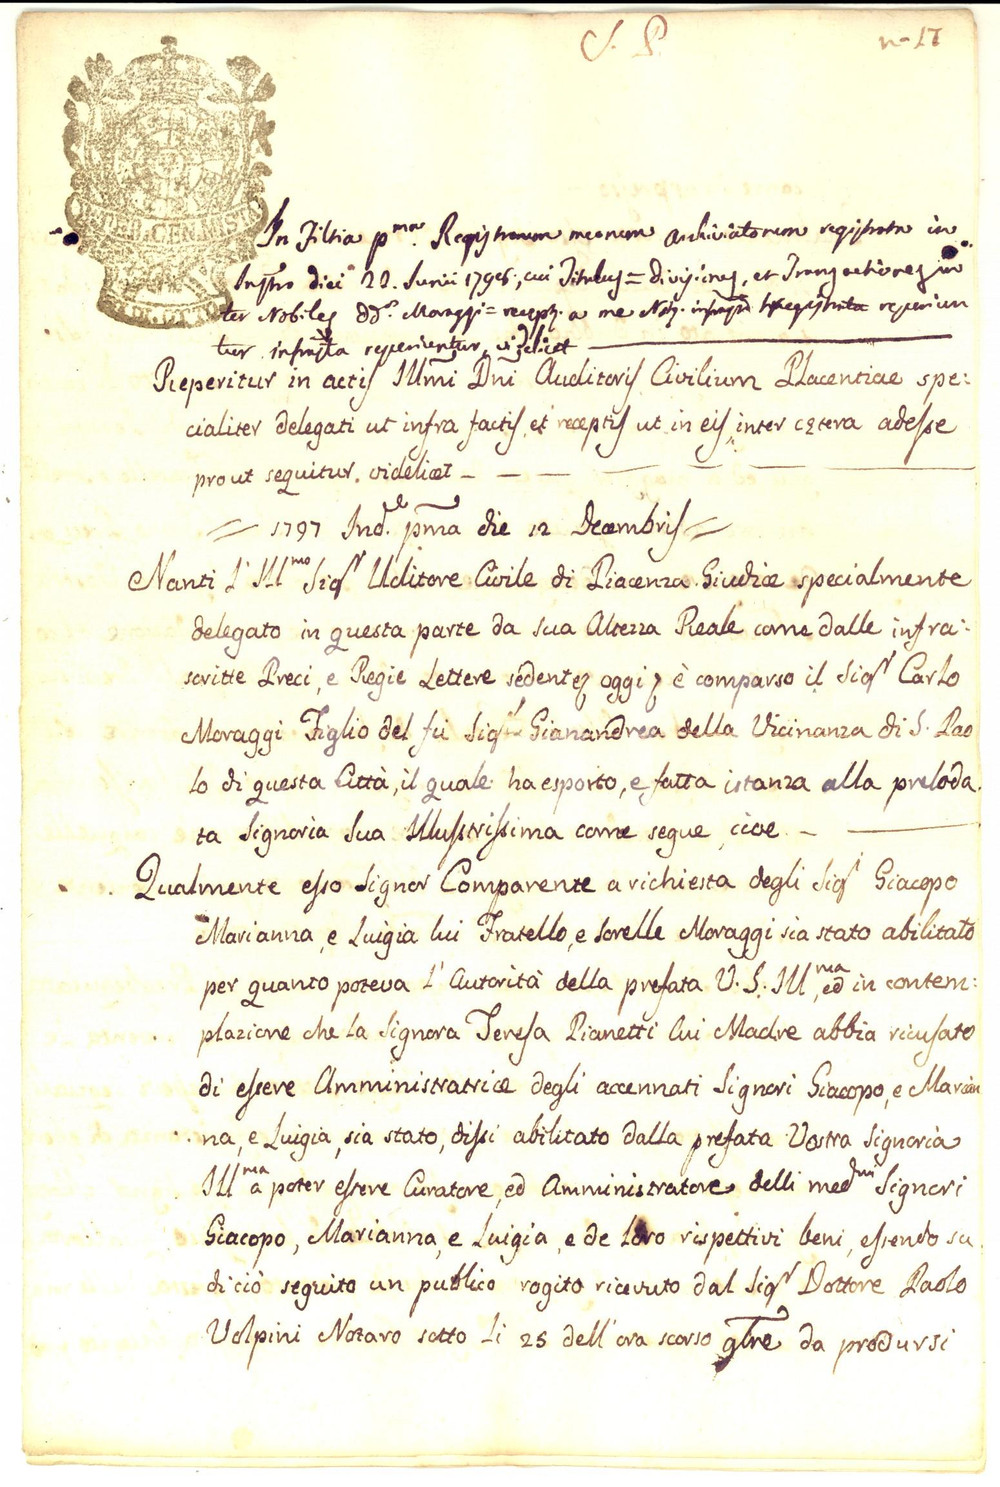 S. P.
n. 17
In Filtia pma. Registrorum meorum Archiviatorum registrata in
Instro diei 22. Junii 1798., cui Titulus = Divisiones, et Transactiones in
ter Nobiles DD.s Moraggi = recept. a me Not.
reperiun
tur infrasta reperientur, videlicet
Reperitur in actis Illmi Dni Auditoris Civilium Placentiae spe:
cialiter delegati ut infra factis, et receptis ut in eis, inter cętera adesse
prout sequitur, videlicet
= 1797 Ind.e pma die 12 Decembris =
Nanti l'Illmo Sigr Uditore Civile di Piacenza Giudice specialmente
delegato in questa parte da sua Altezza Reale come dalle infra:
scritte Preci, e Regie Lettere sedente oggi è comparso il Sigr Carlo
Moraggi Figlio del fu Sigr Gianandrea della Vicinanza di S. Pao
lo di questa Città, il quale ha esposto, e fatta istanza alla preloda
ta Signoria Sua Illustrissima come segue, cioe
Qualmente esso Signor Comparente a richiesta degli Sigri Giacopo
Marianna, e Luigia lui Fratello, e Sorelle Moraggi sia stato abilitato
per quanto poteva l'Autorità della prefata V. S. Illma, ed in contem:
plazione che la Signora Teresa Pianetti lui Madre abbia ricusato
di essere Amministratrice degli accennati Signori Giacopo, e Marian
na, e Luigia, sia stato, dissi abilitato dalla prefata Vostra Signoria
Illma a poter essere Curatore, ed Amministratore delli medmi Signori
Giacopo, Marianna, e Luigia, e de loro rispettivi beni, essendo su
di ciò seguito un publico rogito ricevuto dal Sigr Dottore Paolo
Volpini Notaro sotto li 25 dell'ora scorso 9bre da prodursi